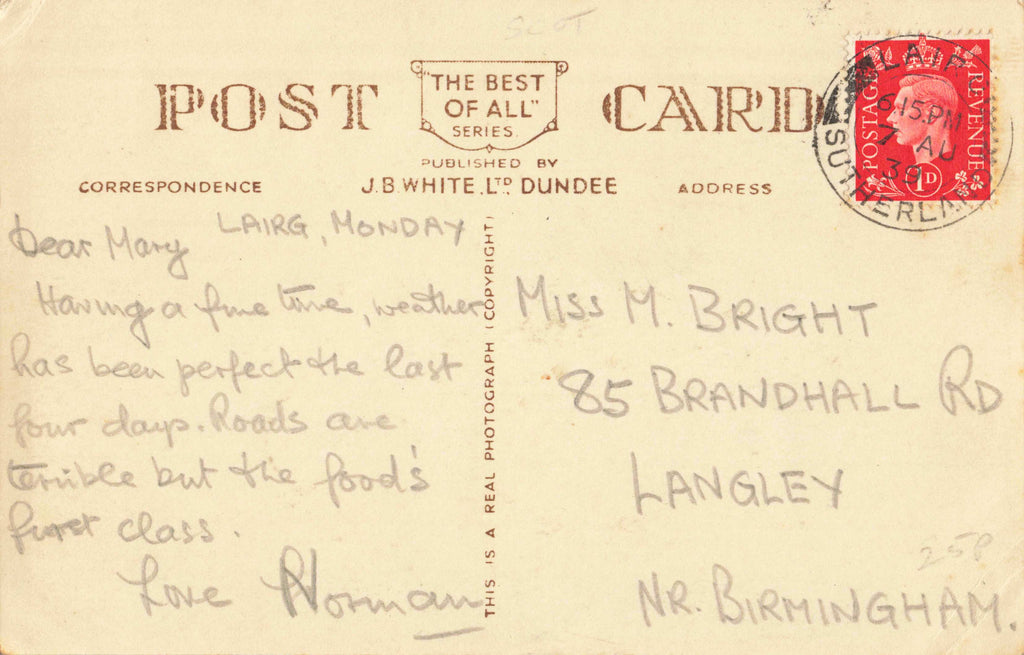 SCOT
POST CARD
"THE BEST
OF ALL"
SERIES
PUBLISHED BY
J.B. WHITE, LTD DUNDEE
CORRESPONDENCE
ADDRESS
POSTAGE
REVENUE
1D
LAIRG
6.15 PM
7 AU
39
SUTHERLAND
LAIRG, MONDAY
Dear Mary
Having a fine time, weather
has been perfect the last
four days. Roads are
terrible but the food's
first class.
Love Norman
THIS IS A REAL PHOTOGRAPH (COPYRIGHT)
MISS M. BRIGHT
85 BRANDHALL RD
LANGLEY
NR. BIRMINGHAM.
25P